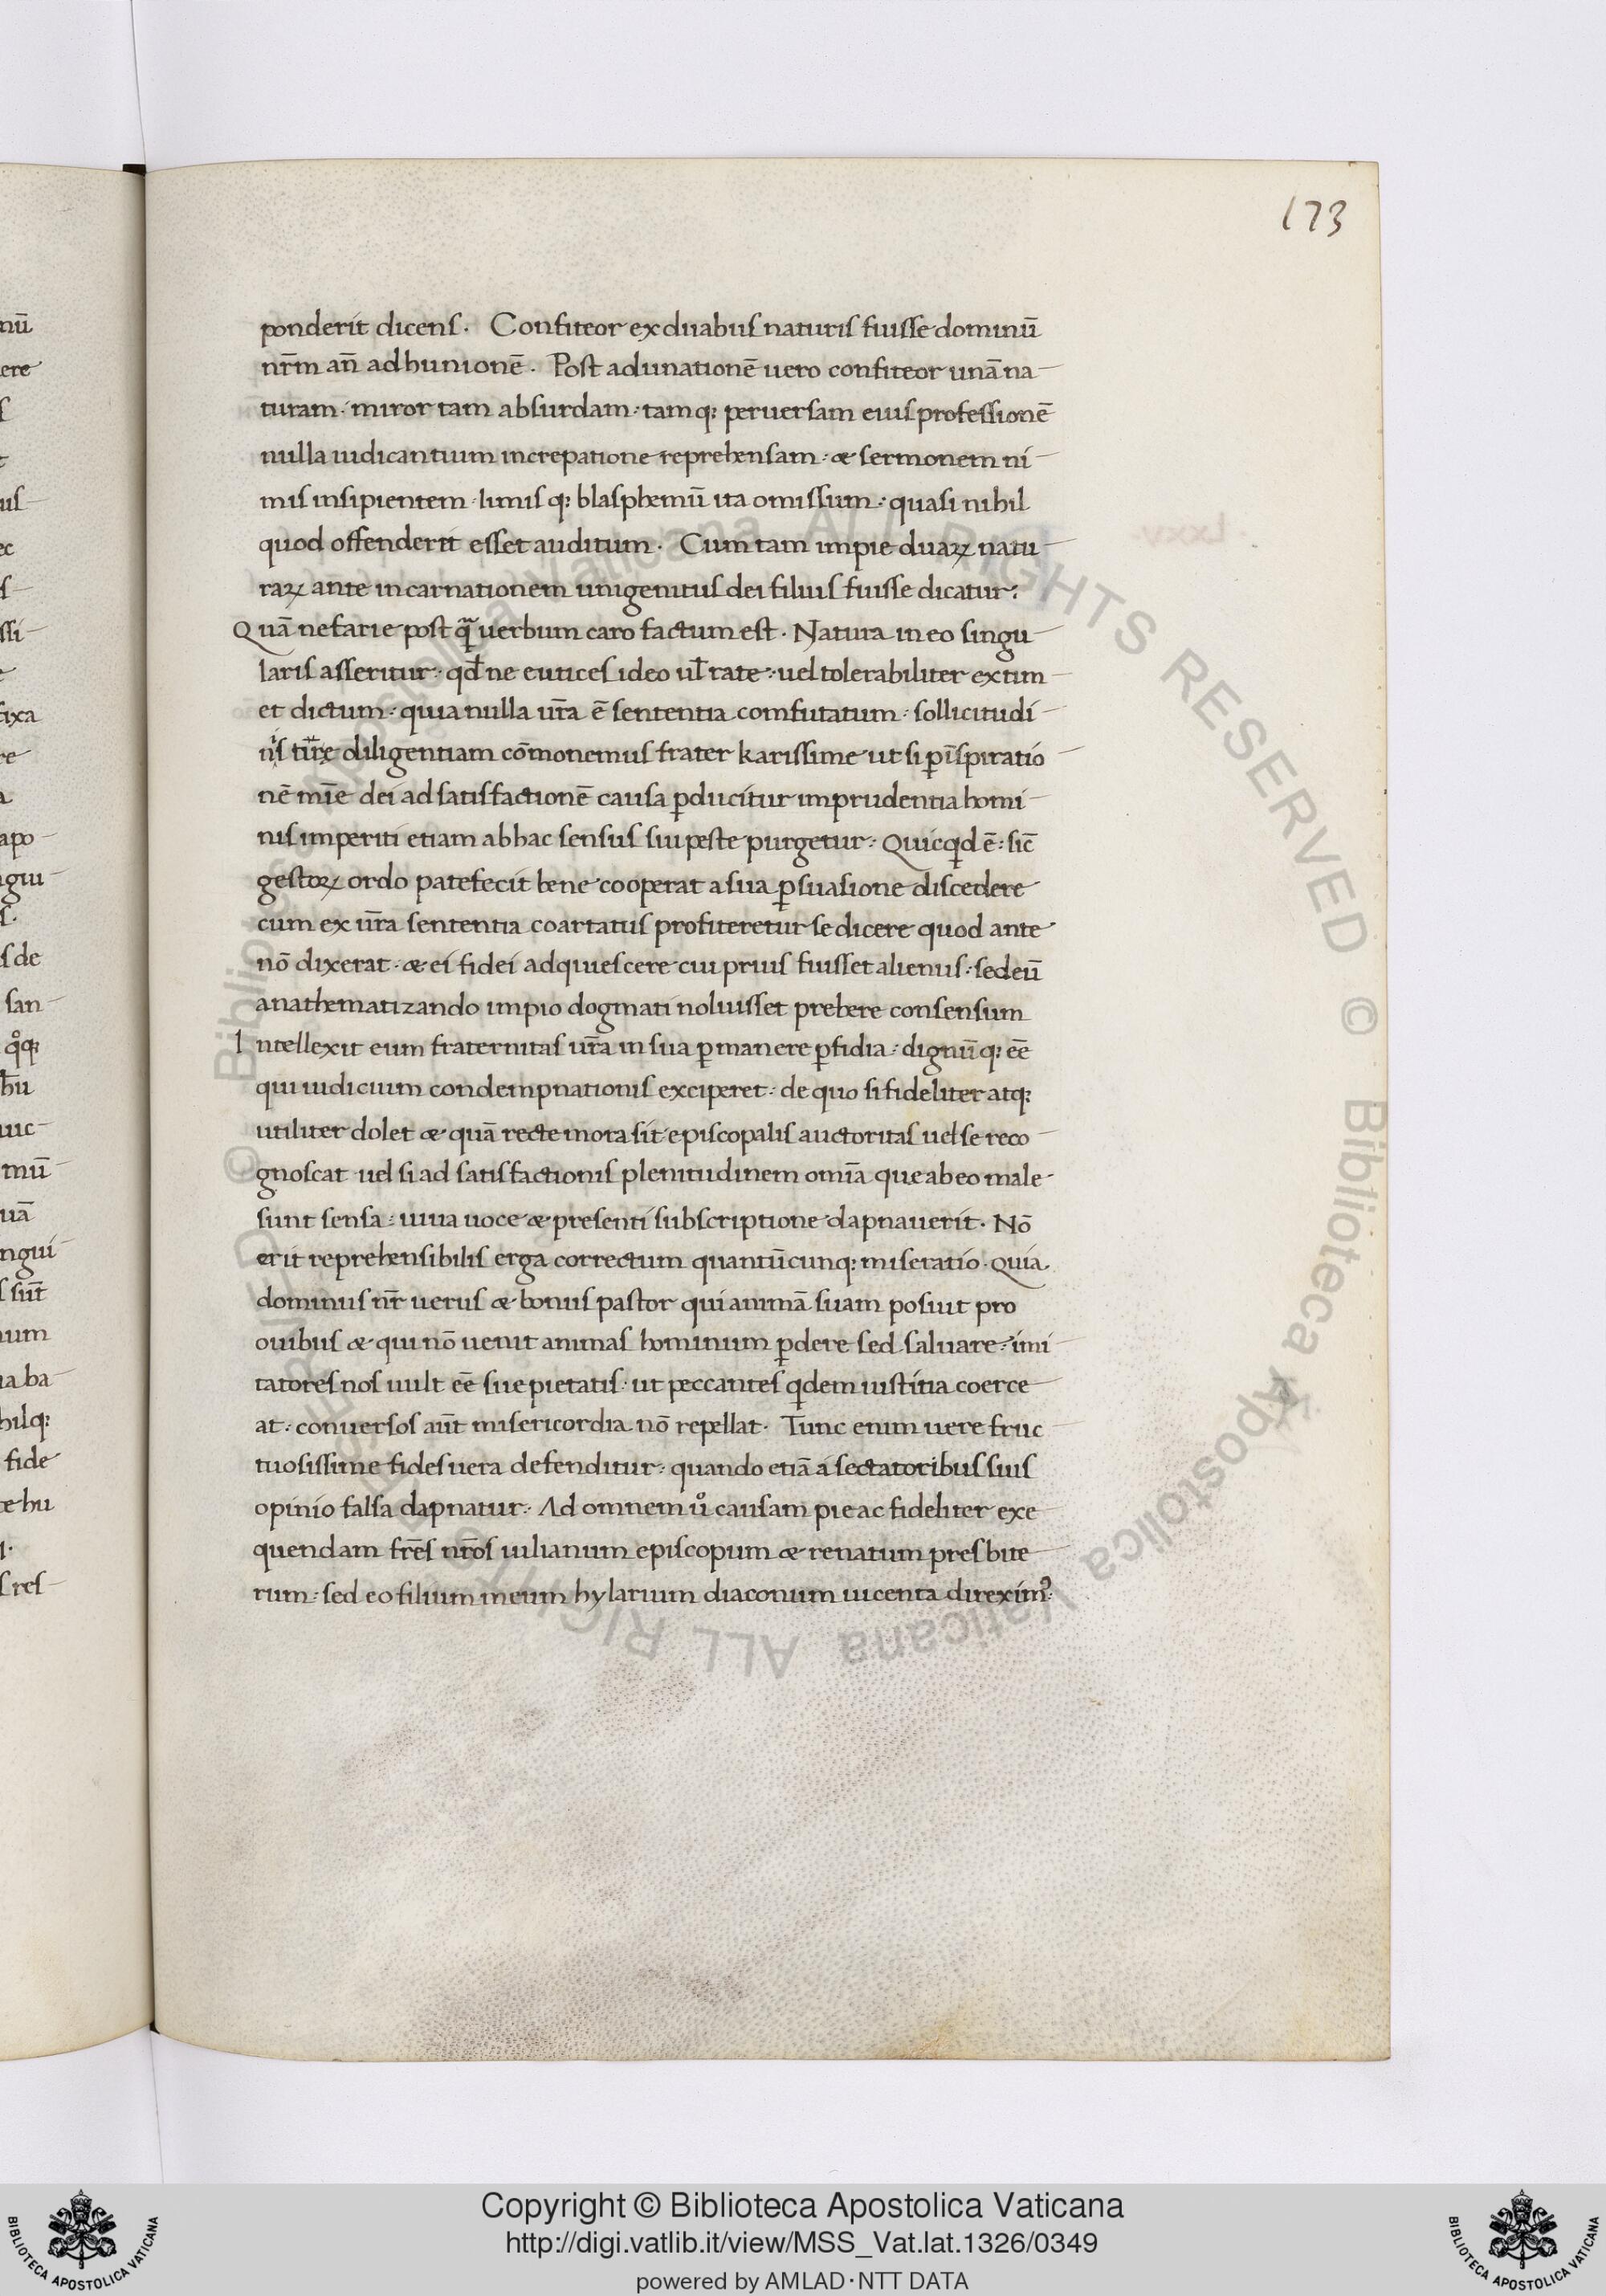 173
ponderit dicens. Confiteor ex duabus naturis fuisse dominū
nr̄m an̄ ad hunionē. Post adunationē uero confiteor unā na
turam. miror tam absurdam. tamq; peruersam eius professionē
nulla iudicantium increpatione reprehensam. & sermonem ni
mis insipientem limis q; blasphemū ita omissum. quasi nihil
quod offenderit esset auditum. Cum tam impie duaꝝ natu
raꝝ ante incarnationem unigenitus dei filius fuisse dicatur?
Quā nefarie post q̄ uerbum caro factum est. Natura in eo singu
laris asseritur. qd̄ ne eutices ideo ul̄ rate uel tolerabiliter extim
et dictum. quia nulla ur̄a ē sententia comfutatum. sollicitudi
nis tūe diligentiam cōmonemus frater karissime ut si ꝑ īspiratio
nē mīe dei ad satisfactionē causa ꝑducitur imprudentia homi
nis imperiti etiam ab hac sensus sui peste purgetur. Quicqid ē. sic̄
gestoꝝ ordo patefecit bene cooperat a sua ꝑsuasione discedere
cum ex ur̄a sententia coartatus profiteretur se dicere quod ante
nō dixerat. & ei fidei adquiescere cui prius fuisset alienus. sed eū
anathematizando impio dogmati noluisset prebere consensum
Intellexit eum fraternitas ur̄a in sua ꝑmanere ꝑfidia. dignūq; eē
qui iudicium condempnationis exciperet. de quo si fideliter atq;
utiliter dolet & quā recte mota sit episcopalis auctoritas uel se reco
gnoscat uel si ad satisfactionis plenitudinem omīa que ab eo male
sunt sensa. uiua uoce & presenti subscriptione dapnauerit. Nō
erit reprehensibilis erga correctum quantūcunq; miseratio. Quia
dominus nr̄ uerus & bonus pastor qui animā suam posuit pro
ouibus & qui nō uenit animas hominum ꝑdere sed saluare. imi
tatores nos uult eē sue pietatis. ut peccantes qidem iustitia coerce
at. conuersos aūt misericordia nō repellat. Tunc enim uere fruc
tuosissime fides uera defenditur. quando etiā a sectatoribus suis
opinio falsa dapnatur. Ad omnem uͦ causam pie ac fideliter exe
quendam fr̄es nr̄os iulianum episcopum & renatum presbite
rum. sed eo filium meum hylarium diaconum uicenta direximꝰ.
Copyright © Biblioteca Apostolica Vaticana
http://digi.vatlib.it/view/MSS_Vat.lat.1326/0349
powered by AMLAD·NTT DATA